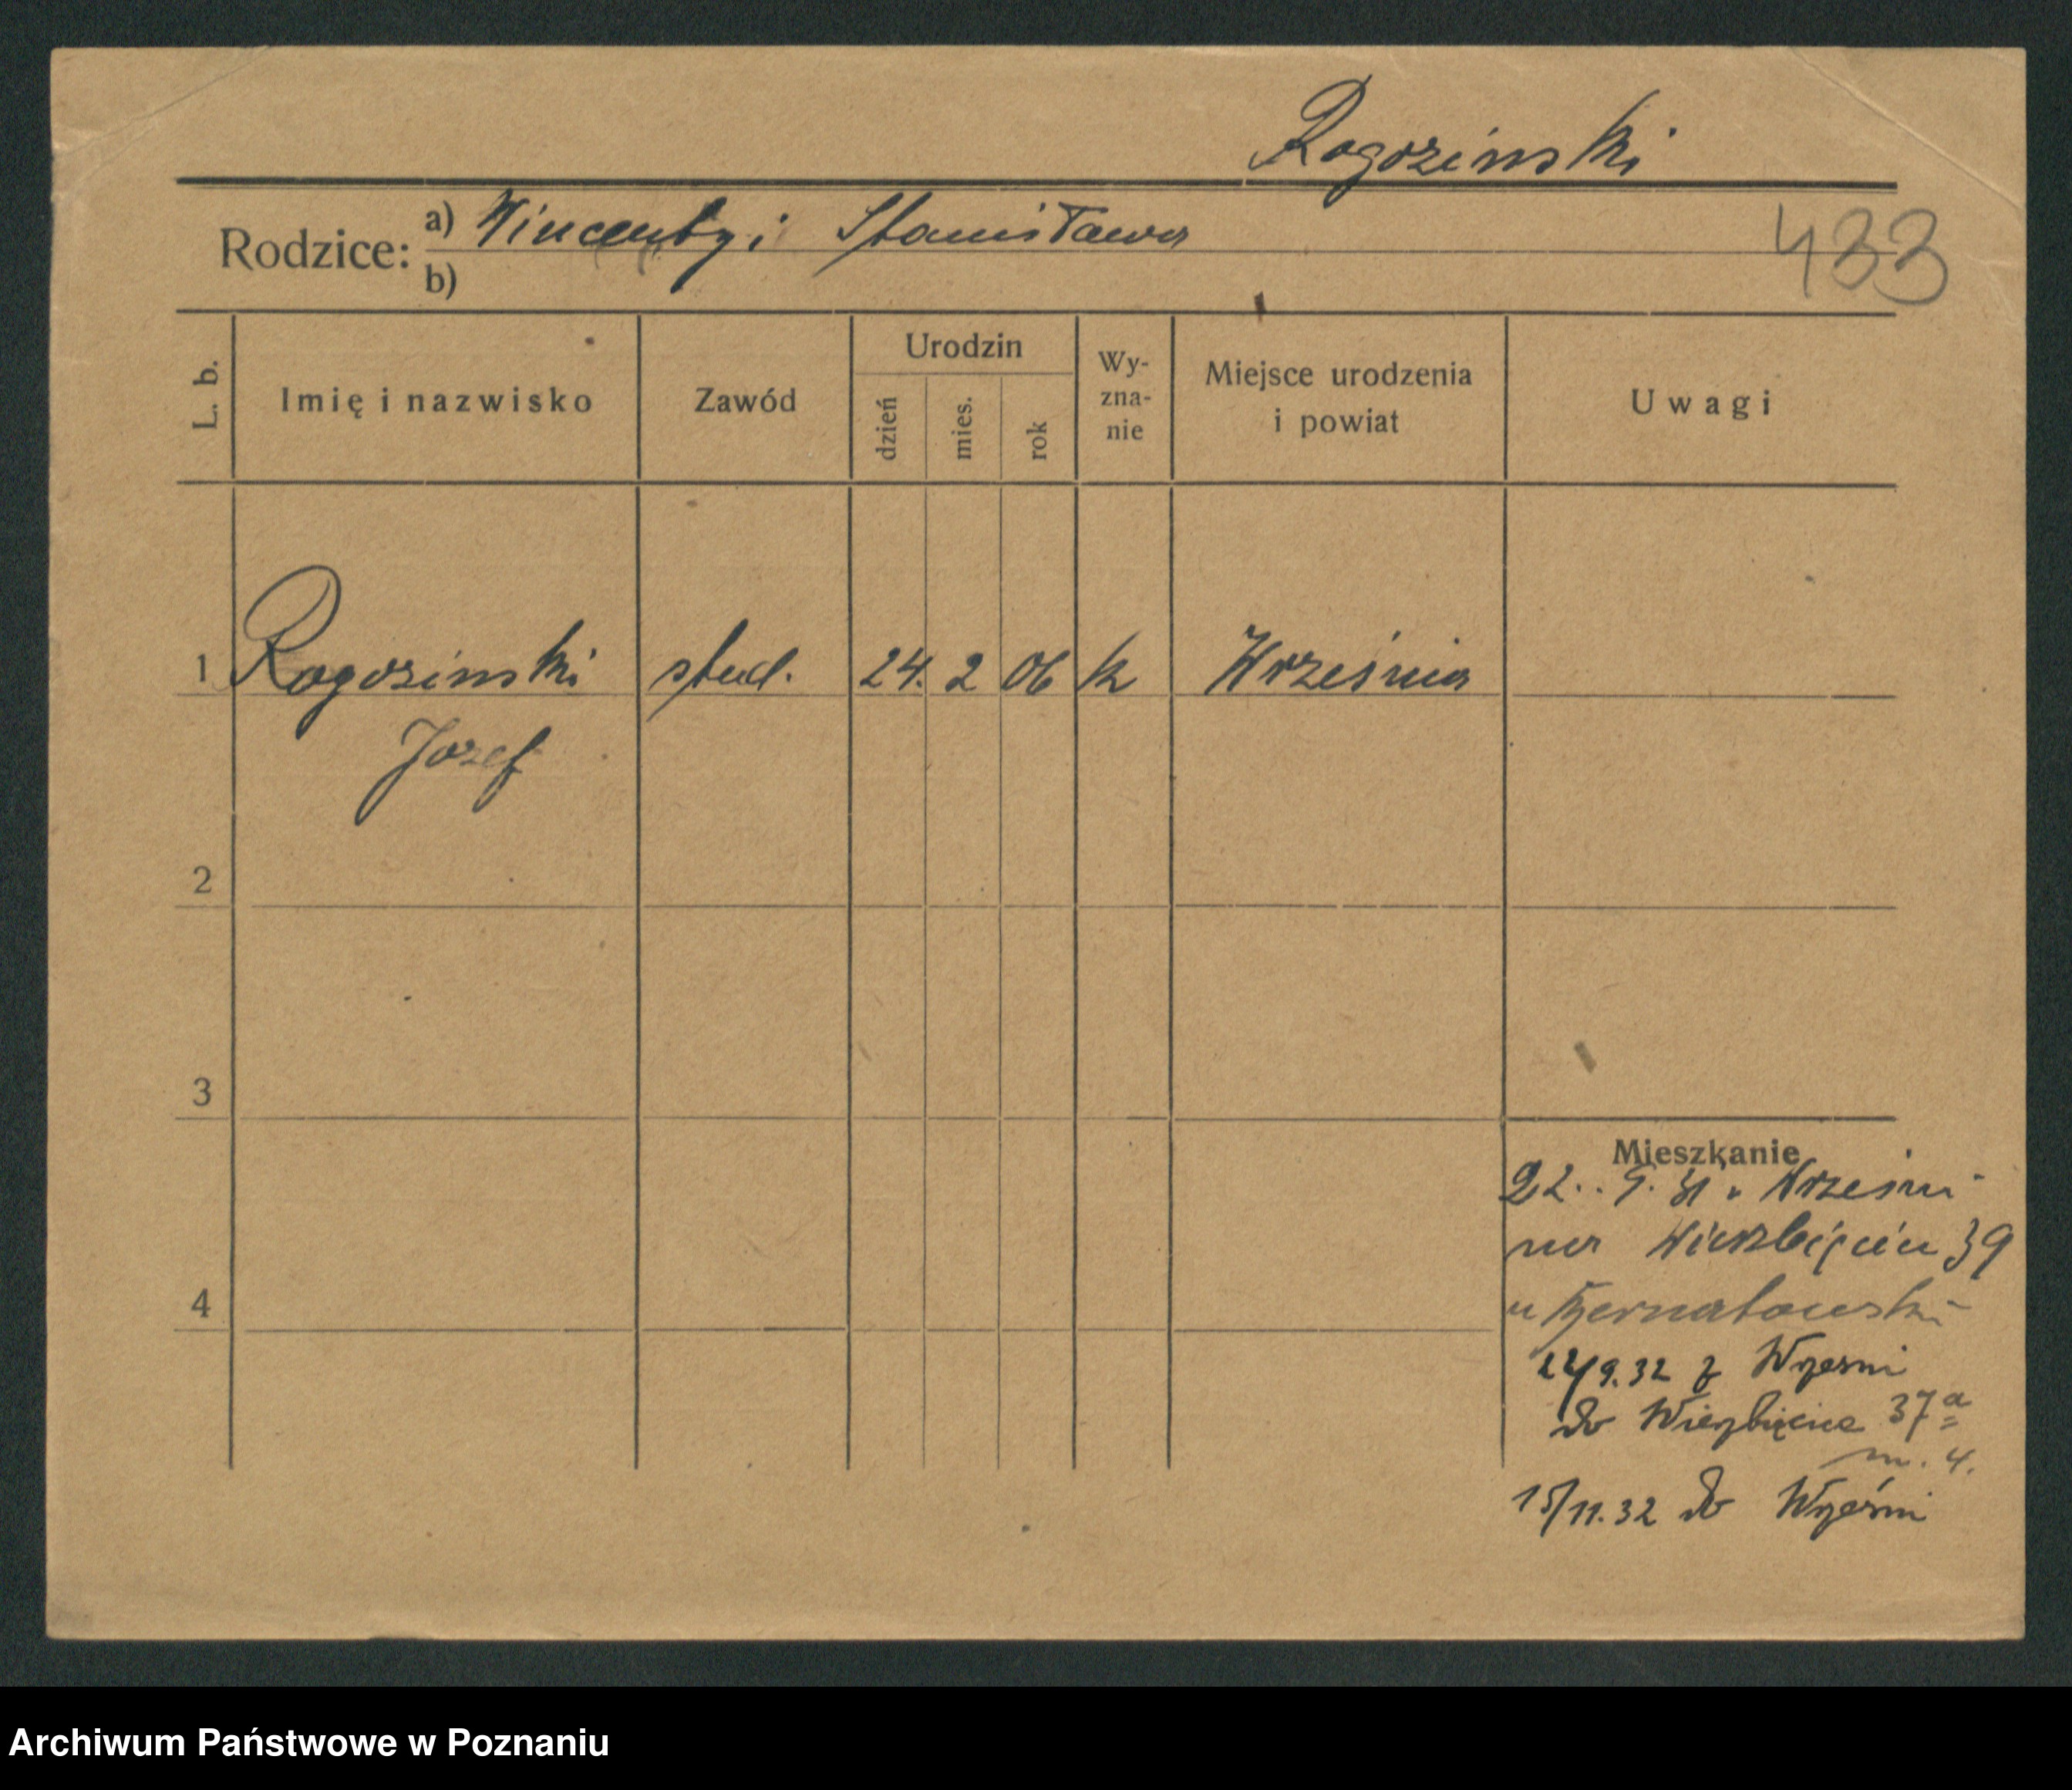 Rogozinski
Rodzice: a) Wincenty i Stanisława
b)
433
L. b.
Imię i nazwisko
Zawód
Urodzin
dzień
mies.
rok
Wy-
zna-
nie
Miejsce urodzenia
i powiat
Uwagi
1 Rogozinski stud. 24. 2 06 k Września
Jozef
2
3
4
Mieszkanie
22. 9. 31 Wrześni
na 39
u
22/9.32 z Wrzesni
do Wierzbięcice 37a
m. 4.
15/11.32 do Wrześni
Archiwum Państwowe w Poznaniu